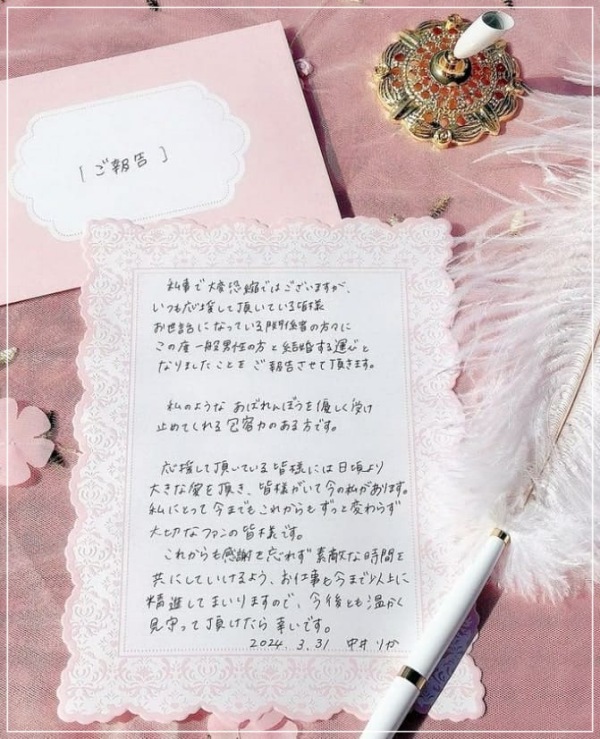 [ご報告]
私事で大変恐縮ではございますが、
いつも応援して頂いている皆様
お世話になっている関係者の方々に
この度一般男性の方と結婚する運びと
なりましたことをご報告させて頂きます。
私のような あばれんぼうを優しく受け
止めてくれる包容力のある方です。
応援して頂いている皆様には日頃より
大きな愛を頂き、皆様がいて今の私があります。
私にとって今までもこれからもずっと変わらず
大切なファンの皆様です。
これからも感謝を忘れず素敵な時間を
共にしていけるよう、お仕事も今まで以上に
精進してまいりますので、今後とも温かく
見守って頂けたら幸いです。
2024.3.31 中井りか